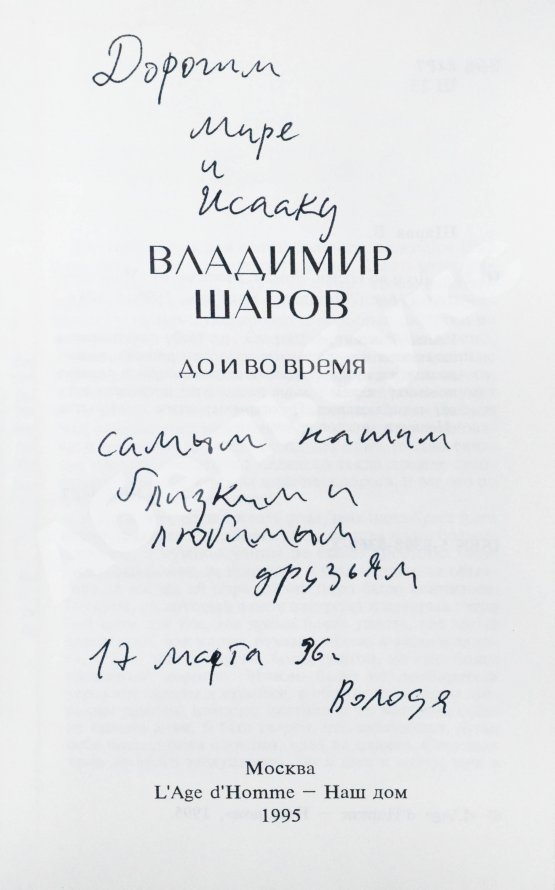 Дорогим
Мире
и
Исааку
ВЛАДИМИР
ШАРОВ
ДО И ВО ВРЕМЯ
самым нашим
близким и
любимым
друзьям
17 марта 96г.
Володя
Москва
L'Age d'Homme – Наш дом
1995